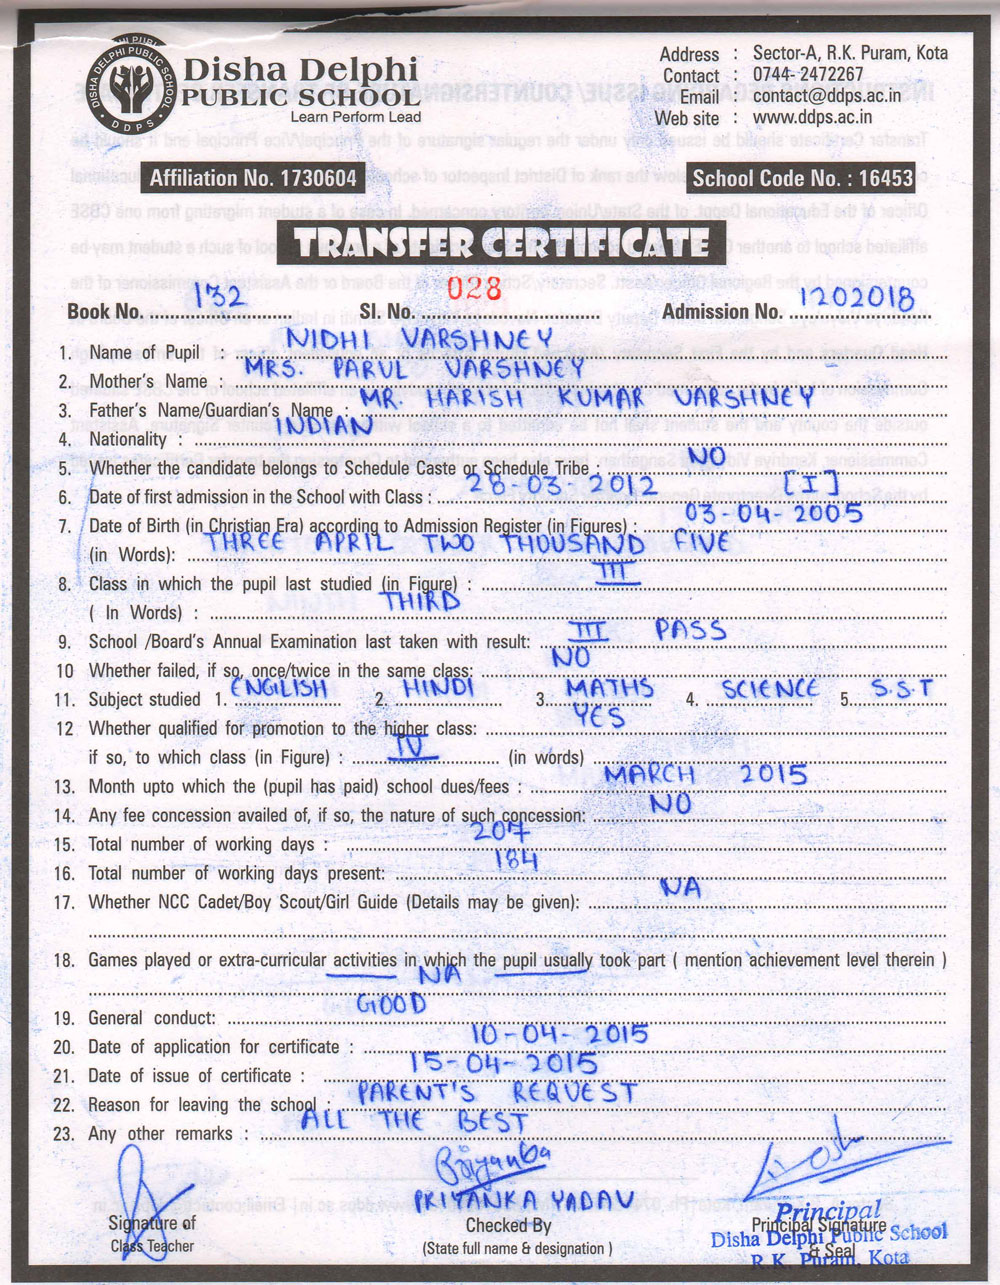 DISHA DELPHI PUBLIC SCHOOL
DDPS
Disha Delphi
PUBLIC SCHOOL
Learn Perform Lead
Address : Sector-A, R.K. Puram, Kota
Contact : 0744- 2472267
Email : contact@ddps.ac.in
Web site : www.ddps.ac.in
Affiliation No. 1730604
School Code No. : 16453
TRANSFER CERTIFICATE
Book No. 132 Sl. No. 028 Admission No. 1202018
1. Name of Pupil : NIDHI VARSHNEY
2. Mother's Name : MRS. PARUL VARSHNEY
3. Father's Name/Guardian's Name : MR. HARISH KUMAR VARSHNEY
4. Nationality : INDIAN
5. Whether the candidate belongs to Schedule Caste or Schedule Tribe : NO
6. Date of first admission in the School with Class : 28-03-2012 [I]
7. Date of Birth (in Christian Era) according to Admission Register (in Figures) : 03-04-2005
(in Words): THREE APRIL TWO THOUSAND FIVE
8. Class in which the pupil last studied (in Figure) : III
( In Words) : THIRD
9. School /Board's Annual Examination last taken with result: III PASS
10 Whether failed, if so, once/twice in the same class: NO
11. Subject studied 1. ENGLISH 2. HINDI 3. MATHS 4. SCIENCE 5. S.S.T
12 Whether qualified for promotion to the higher class: YES
if so, to which class (in Figure) : IV (in words)
13. Month upto which the (pupil gas paid) school dues/fees : MARCH 2015
14. Any fee concession availed of, if so, the nature of such concession: NO
15. Total number of working days : 207
16. Total number of working days present: 184
17. Whether NCC Cadet/Boy Scout/Girl Guide (Details may be given): NA
18. Games played or extra-curricular activities in which the pupil usually took part ( mention achievement level therein )
NA
19. General conduct: GOOD
20. Date of application for certificate : 10-04-2015
21. Date of issue of certificate : 15-04-2015
22. Reason for leaving the school : PARENT'S REQUEST
23. Any other remarks : ALL THE BEST
Priyanka
PRIYANKA YADAV
Signature of
Class Teacher
Checked By
(State full name & designation )
Principal Signature
& Seal
Principal
Disha Delphi Public School
R.K. Puram, Kota